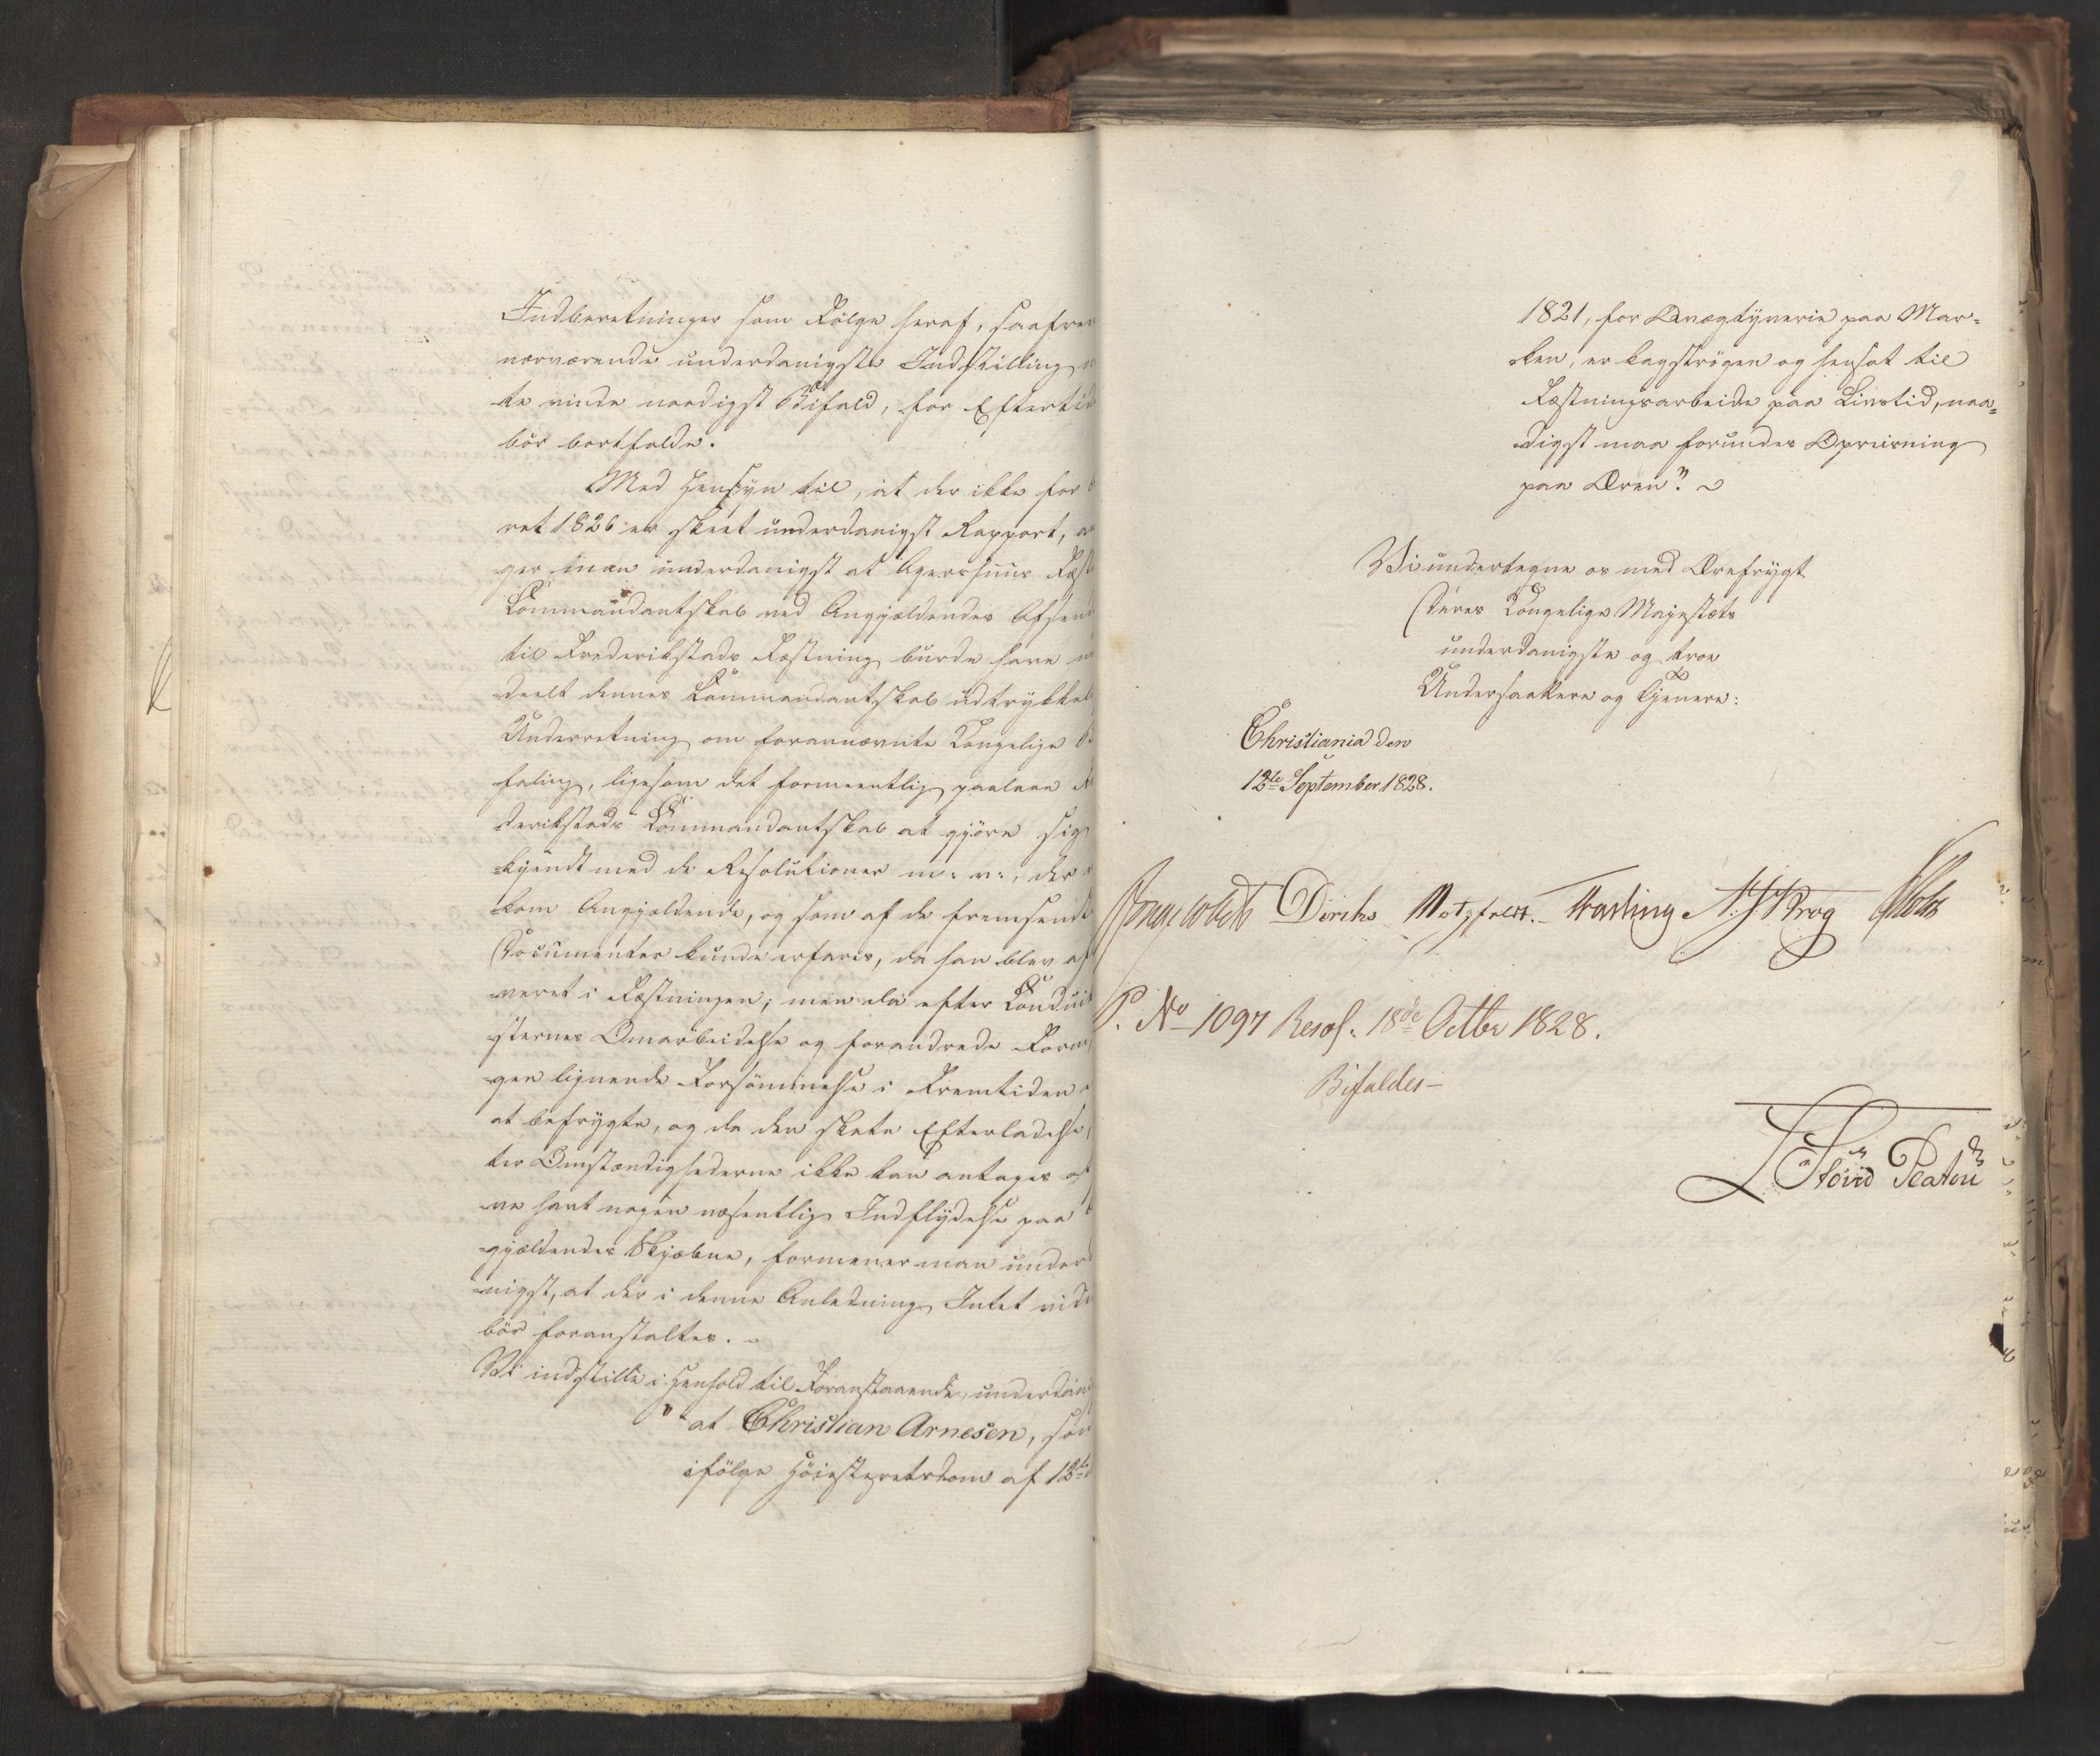 Indberetninger som Følge heraf, saafrem
nærværende underdanigste Indstilling
te vinde naadigst Bifald, for Eftertid
bør bortfalde.
Med Hensyn til, at der ikke for
ret 1826 er skeet underdanigst Rapport,
ger man underdanigst at Agershuus Fæst
Commandantskab ved Angjældendes Afsend
til Frederikstads Fæstning burde have
deelt dennes Commandantskab udtrykkel
Underretning om forannævnte Kongelige
faling, ligesom det formeentlig paalaae
derikstads Commandantskab at gjöre sig
bekjendt med de Resolutioner m: v:, der
kom Angjældende, og som af de fremsendte
Documenter kunde erfares, da han blev af
veret i Fæstningen; men da efter Conduit
sternes Omarbeidelse og forandrede Form
gen lignende Forsömmelse i Fremtiden
at befrygte, og da den skete Efterladelse
ter Omstændighederne ikke kan antages at
ve havt nogen væsentlig Indflydelse paa
gjældendes Skjæbne, formener man under
nigst, at der i denne Anledning Intet vide
bör foranstaltes. –
Vi indstille i Henhold til Foranstaaende, underdanig
"at Christian Arnesen, som
ifölge Höiesteretsdom af 12te
1821, for Qvægtyverie paa Mar=
ken, er kagströgen og hensat til
Fæstningsarbeide paa Livstid, naa=
digst maa forundes Opreisning
paa Æren."
Vi undertegne os med Ærefrygt
Deres Kongelige Majestæts
underdanigste og troe
Undersaatter og Tjenere:
Christiania den
12te September 1828.
Diriks Motzfeldt. Fasting A. J. Krog
P. No 1097 Resol. 18de Octbr 1828.
Bifaldes –
Platou